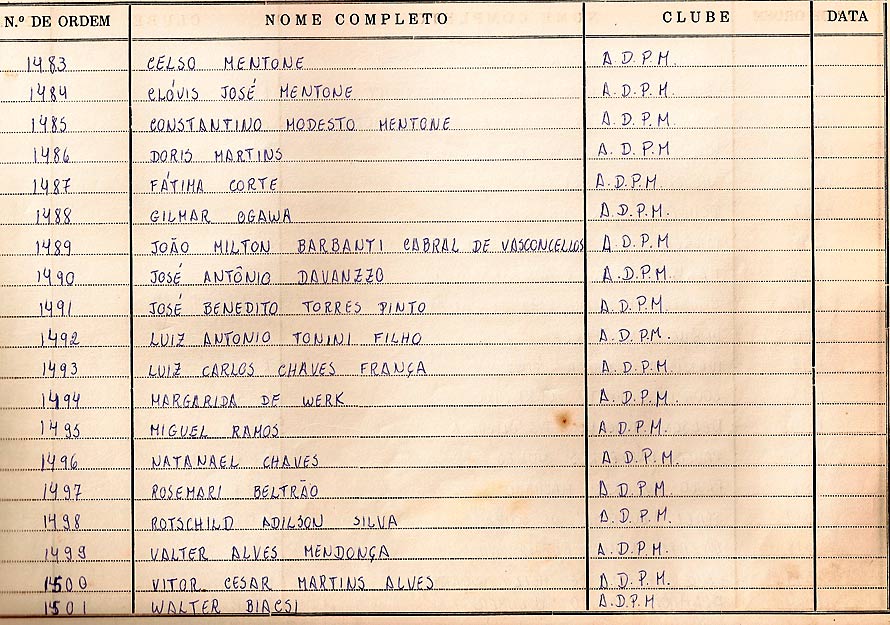 N.º DE ORDEM NOME COMPLETO CLUBE DATA
1483 CELSO MENTONE A.D.P.M.
1484 CLÓVIS JOSÉ MENTONE A.D.P.M.
1485 CONSTANTINO MODESTO MENTONE A.D.P.M.
1486 DORIS MARTINS A.D.P.M
1487 FÁTIMA CORTE A.D.P.M.
1488 GILMAR OGAWA A.D.P.M.
1489 JOÃO MILTON BARBANTI CABRAL DE VASCONCELLOS A.D.P.M
1490 JOSÉ ANTÔNIO DAVANZZO A.D.P.M.
1491 JOSÉ BENEDITO TORRES PINTO A.D.P.M.
1492 LUIZ ANTONIO TONINI FILHO A.D.P.M.
1493 LUIZ CARLOS CHAVES FRANÇA A.D.P.M.
1494 MARGARIDA DE WERK A.D.P.M.
1495 MIGUEL RAMOS A.D.P.M.
1496 NATANAEL CHAVES A.D.P.M.
1497 ROSEMARI BELTRÃO A.D.P.M.
1498 ROTSCHILD ADILSON SILVA A.D.P.M.
1499 VALTER ALVES MENDONÇA A.D.P.M.
1500 VITOR CESAR MARTINS ALVES A.D.P.M.
1501 WALTER A.D.P.M